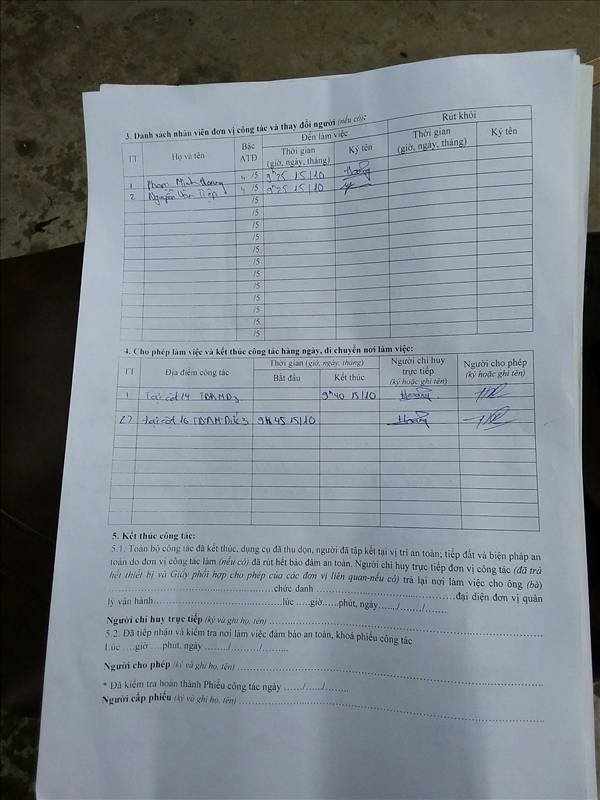 3. Danh sách nhân viên đơn vị công tác và thay đổi người (nếu có):
TT Họ và tên Bậc ATĐ Đến làm việc Rút khỏi
Thời gian (giờ, ngày, tháng) Ký tên Thời gian (giờ, ngày, tháng) Ký tên
1 Phạm Minh Hoàng 4 /5 9h25 15/10
2 Nguyễn Văn Tiệp 4 /5 9h25 15/10
/5
/5
/5
/5
/5
/5
/5
/5
/5
/5
/5
/5
4. Cho phép làm việc và kết thúc công tác hàng ngày, di chuyển nơi làm việc:
TT Địa điểm công tác Thời gian (giờ, ngày, tháng) Người chỉ huy trực tiếp (ký hoặc ghi tên) Người cho phép (ký hoặc ghi tên)
Bắt đầu Kết thúc
1 Tại cột 14 9h40 15/10 Hoàng
2 tại cột 16 9h45 15/10 Hoàng
5. Kết thúc công tác:
5.1. Toàn bộ công tác đã kết thúc, dụng cụ đã thu dọn, người đã tập kết tại vị trí an toàn; tiếp đất và biện pháp an
toàn do đơn vị công tác làm (nếu có) đã rút hết bảo đảm an toàn. Người chỉ huy trực tiếp đơn vị công tác (đã trả
hết thiết bị và Giấy phối hợp cho phép của các đơn vị liên quan-nếu có) trả lại nơi làm việc cho ông (bà)
.......................................................chức danh .............................................đại diện đơn vị quản
lý vận hành..........................................lúc .....giờ.....phút, ngày....../......./.......
Người chỉ huy trực tiếp (ký và ghi họ, tên) ........................................................................
5.2. Đã tiếp nhận và kiểm tra nơi làm việc đảm bảo an toàn, khoá phiếu công tác
Lúc .....giờ .....phút, ngày ......./........./.........
Người cho phép (ký và ghi họ, tên) ........................................................................
* Đã kiểm tra hoàn thành Phiếu công tác ngày ....../....../........
Người cấp phiếu (ký và ghi họ, tên) ........................................................................